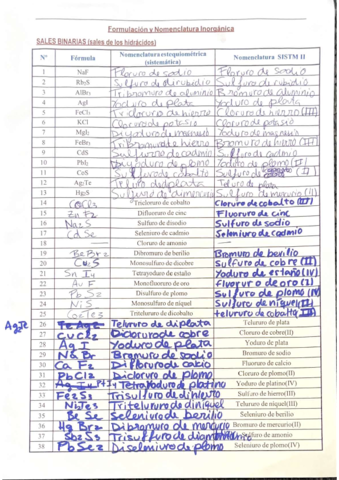 Formulación y Nomenclatura Inorgánica
SALES BINARIAS (sales de los hidrácidos)
Nº Fórmula Nomenclatura estequiométrica (sistemática) Nomenclatura SISTM II
1 NaF Floruro de sodio Floruro de Sodio
2 Rb₂S Sulfuro de dirubidio Sulfuro de rubidio
3 AlBr₃ Tribromuro de aluminio Bromuro de aluminio
4 AgI Yoduro de plata Yoduro de plata
5 FeCl₃ Tricloruro de hierro Cloruro de hierro (III)
6 KCl Cloruro de potasio Cloruro de potasio
7 MgI₂ Diyoduro de magnesio Yoduro de magnesio
8 FeBr₃ Tribromuro de hierro Bromuro de hierro (III)
9 CdS Sulfuro de cadmio Sulfuro de cadmio
10 PbI₂ Diyoduro de plomo Yoduro de plomo (II)
11 CoS Sulfuro de cobalto Sulfuro de
12 Ag₂Te Telururo de diplata Teluro de plata
13 HgS Sulfuro de Sulfuro de mercurio (II)
14 CoCl₃ Tricloruro de cobalto Cloruro de cobalto (III)
15 ZnF₂ Difluoruro de cinc Fluoruro de cinc
16 Na₂S Sulfuro de disodio Sulfuro de sodio
17 CdSe Seleniuro de cadmio Seleniuro de cadmio
18 Cloruro de amonio
19 BeBr₂ Dibromuro de berilio Bromuro de berilio
20 Monosulfuro de dicobre Sulfuro de cobre
21 SnI₄ Tetrayoduro de estaño Yoduro de estaño (IV)
22 AuF Monofluoruro de oro Fluoruro de oro (I)
23 PbS₂ Disulfuro de plomo Sulfuro de plomo (IV)
24 NiS Monosulfuro de níquel Sulfuro de níquel (II)
25 Tritelururo de dicobalto Telururo de cobalto (III)
Ag₂Te
26 Telururo de diplata Telururo de plata
27 CuCl₂ Dicloruro de cobre Cloruro de cobre(II)
28 AgI Yoduro de plata Yoduro de plata
29 NaBr Bromuro de sodio Bromuro de sodio
30 CaF₂ Difluoruro de calcio Fluoruro de calcio
31 PbCl₂ Dicloruro de plomo Cloruro de plomo(II)
32 PtI₄ Tetrayoduro de platino Yoduro de platino(IV)
33 Fe₂S₃ Trisulfuro de dihierro Sulfuro de hierro(III)
34 Ni₂Te₃ Tritelururo de diníquel Telururo de níquel(III)
35 BeSe Seleniuro de berilio Seleniuro de berilio
36 HgBr₂ Dibromuro de mercurio Bromuro de mercurio(II)
37 Trisulfuro de Sulfuro de amonio
38 PbSe₂ Diseleniuro de plomo Seleniuro de plomo(IV)